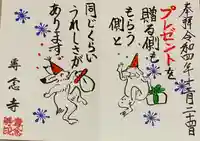 奉拝 令和四年十二月二十四日
プレゼントを
贈る側も
もらう
側と
同じくらい
うれしさが
あります
専念寺